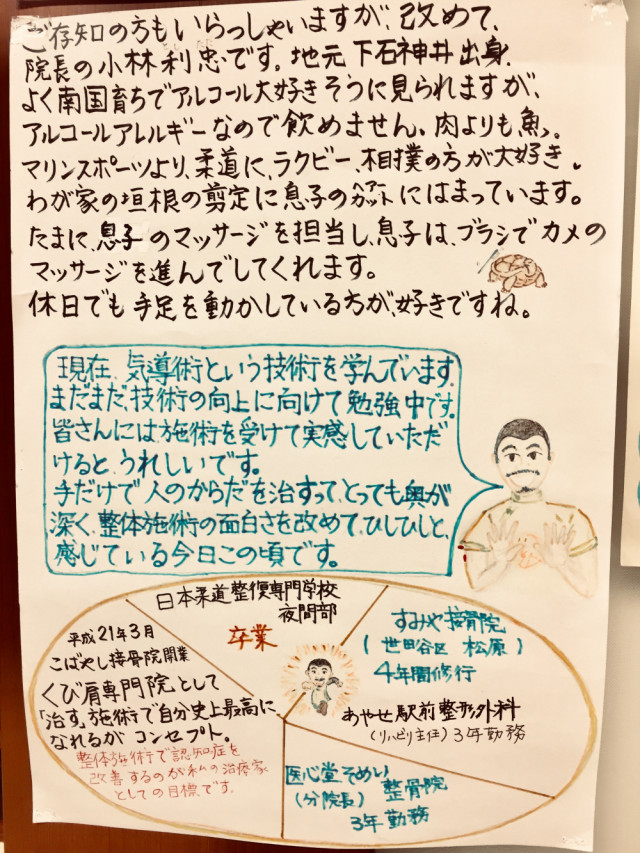 ご存知の方もいらっしゃいますが、改めて、
院長の小林利忠です。地元下石神井出身、
よく南国育ちでアルコール大好きそうに見られますが、
アルコールアレルギーなので飲めません、肉よりも魚っ。
マリンスポーツより、柔道に、ラクビー、相撲の方が大好き。
わが家の垣根の剪定に息子のヘアーカットにはまっています。
たまに、息子のマッサージを担当し、息子は、ブラシでカメの
マッサージを進んでしてくれます。
休日でも手足を動かしている方が、好きですね。
現在、気導術という技術を学んでいます。
まだまだ、技術の向上に向けて勉強中です。
皆さんには施術を受けて実感していただ
けると、うれしいです。
手だけで人のからだを治すって、とっても奥が
深く、整体施術の面白さを改めて、ひしひしと、
感じている今日この頃です。
日本柔道整復専門学校
夜間部
卒業
すみや接骨院
(世田谷区 松原)
4年間修行
あやせ駅前整形外科
(リハビリ主任)3年勤務
医心堂そめい整骨院
(分院長)
3年勤務
平成21年3月
こばやし接骨院開業
くび肩専門院として
「治す」施術で自分史上最高に、
なれるが コンセプト。
整体施術で認知症を
改善するのが私の治療家
としての目標です。